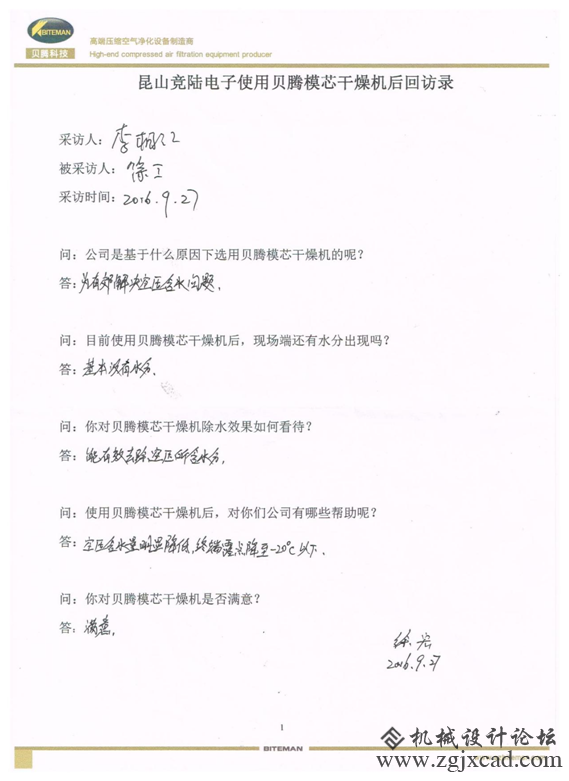 BITEMAN
贝腾科技
高端压缩空气净化设备制造商
High-end compressed air filtration equipment producer
昆山竞陆电子使用贝腾模芯干燥机后回访录
采访人：李
被采访人：徐工
采访时间：2016.9.27
问：公司是基于什么原因下选用贝腾模芯干燥机的呢？
答：为有效解决空压含水问题.
问：目前使用贝腾模芯干燥机后，现场端还有水分出现吗？
答：基本没有水分.
问：你对贝腾模芯干燥机除水效果如何看待？
答：能有效去除空压所含水分.
问：使用贝腾模芯干燥机后，对你们公司有哪些帮助呢？
答：空压含水量明显降低,终端露点降至-20℃以下.
问：你对贝腾模芯干燥机是否满意？
答：满意.
徐
2016.9.27
1
BITEMAN
机械设计论坛
www.zgjxcad.com